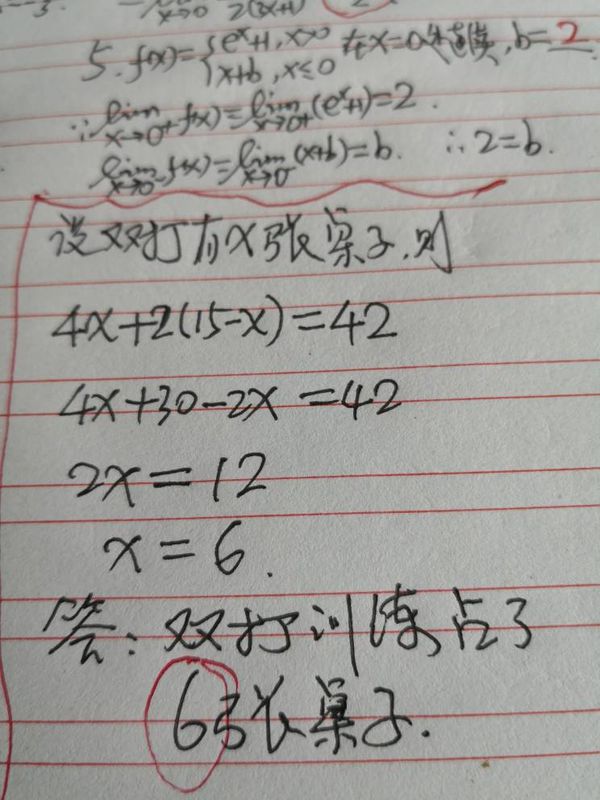 x→0 2(3x+1) 2
5. f(x)={e^x+1, x>0 在x=0处连续, b=2
x+b, x≤0
∵lim x→0+ f(x)=lim x→0+ (e^x+1)=2.
lim x→0- f(x)=lim x→0- (x+b)=b. ∴2=b.
设双打有x张桌子.则
4x+2(15-x)=42
4x+30-2x=42
2x=12
x=6.
答:双打训练占了
6张桌子.